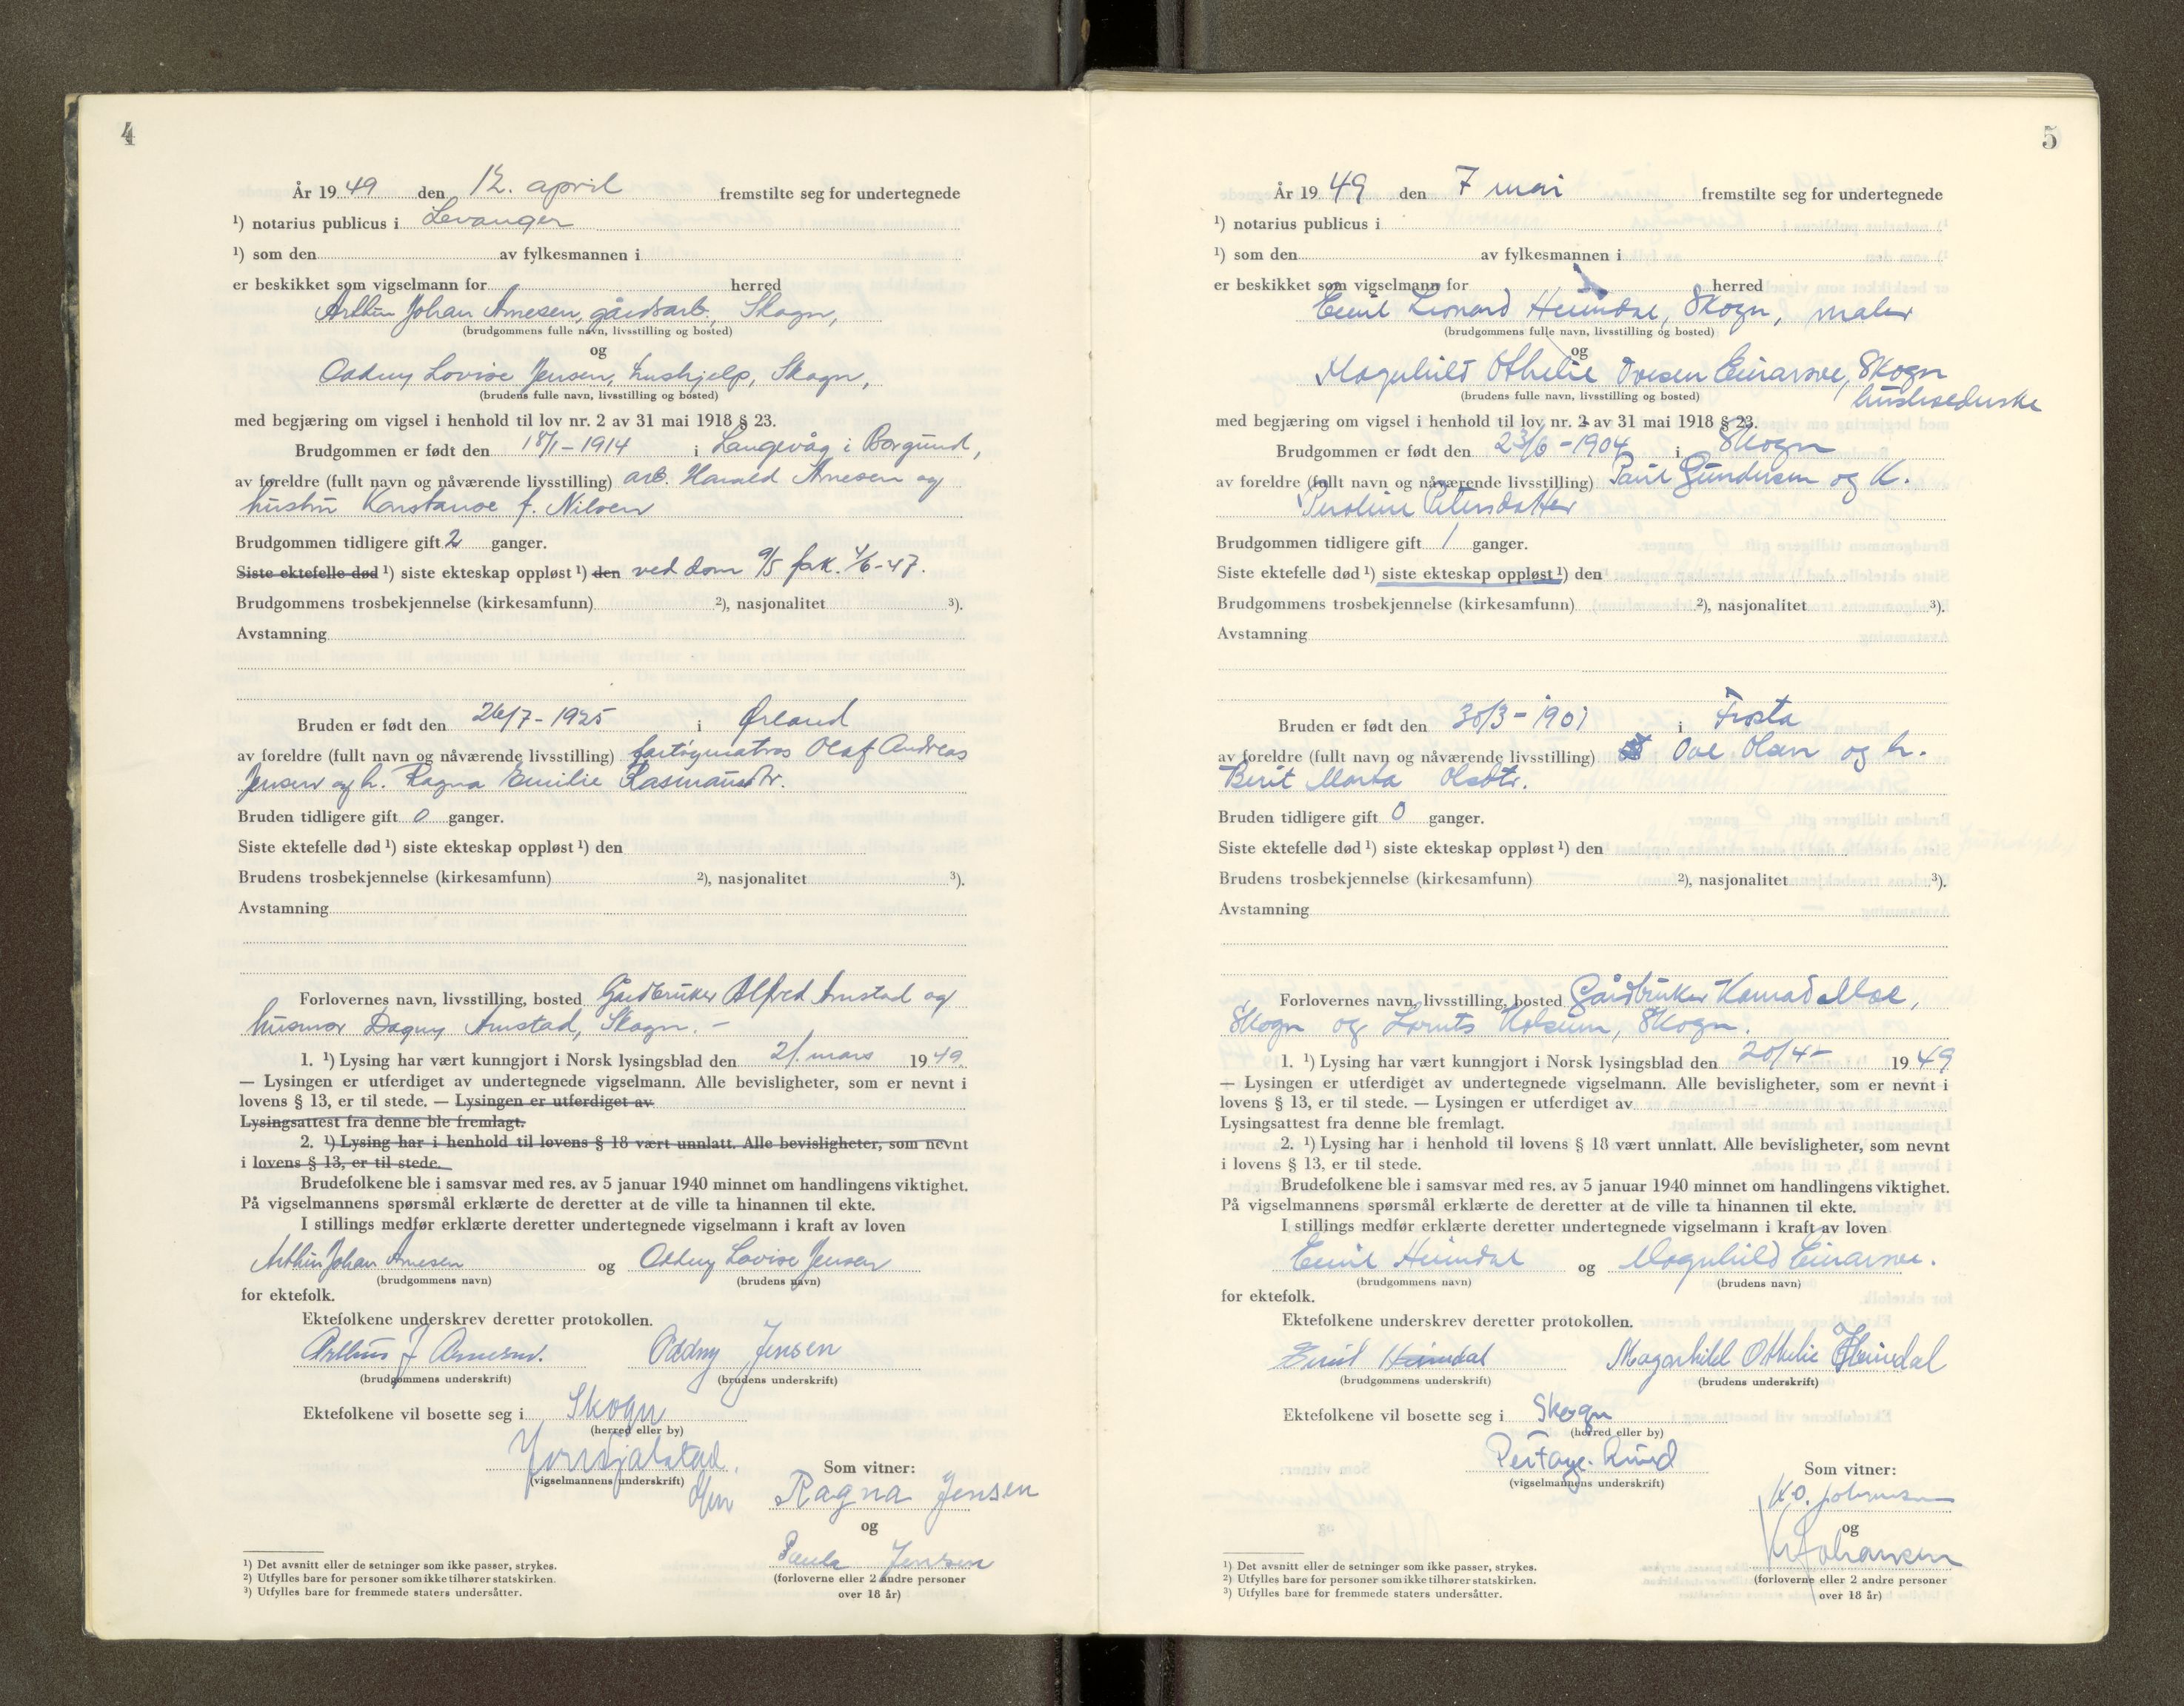 4
År 19 49 den 12. april fremstilte seg for undertegnede
¹) notarius publicus i Levanger
¹) som den av fylkesmannen i
er beskikket som vigselmann for herred
Arthur Johan Arnesen, gårdsarb., Skogn,
(brudgommens fulle navn, livsstilling og bosted)
og
Oddny Lovise Jensen, hushjelp, Skogn,
(brudens fulle navn, livsstilling og bosted)
med begjæring om vigsel i henhold til lov nr. 2 av 31 mai 1918 § 23.
Brudgommen er født den 18/1-1914 i Langevåg i Borgund,
av foreldre (fullt navn og nåværende livsstilling) arb. Harald Arnesen og
hustru Konstanse f. Nilsen
Brudgommen tidligere gift 2 ganger.
Siste ektefelle død ¹) siste ekteskap oppløst ¹) den ved dom 9/5 fork. 4/6-47.
Brudgommens trosbekjennelse (kirkesamfunn) ²), nasjonalitet ³).
Avstamning
Bruden er født den 26/7-1925 i Ørland
av foreldre (fullt navn og nåværende livsstilling) fartøymatros Olaf Andreas
Jensen og h. Ragna Emilie Rasmusdtr.
Bruden tidligere gift 0 ganger.
Siste ektefelle død ¹) siste ekteskap oppløst ¹) den
Brudens trosbekjennelse (kirkesamfunn) ²), nasjonalitet ³).
Avstamning
Forlovernes navn, livsstilling, bosted Gårdbruker Alfred Arnstad og
husmor Dagny Arnstad, Skogn. -
1. ¹) Lysing har vært kunngjort i Norsk lysingsblad den 21. mars 19 49.
— Lysingen er utferdiget av undertegnede vigselmann. Alle bevisligheter, som er nevnt i
lovens § 13, er til stede. — Lysingen er utferdiget av
Lysingsattest fra denne ble fremlagt.
2. ¹) Lysing har i henhold til lovens § 18 vært unnlatt. Alle bevisligheter, som nevnt
i lovens § 13, er til stede.
Brudefolkene ble i samsvar med res. av 5 januar 1940 minnet om handlingens viktighet.
På vigselmannens spørsmål erklærte de deretter at de ville ta hinannen til ekte.
I stillings medfør erklærte deretter undertegnede vigselmann i kraft av loven
Arthur Johan Arnesen og Oddny Lovise Jensen
(brudgommens navn) (brudens navn)
for ektefolk.
Ektefolkene underskrev deretter protokollen.
Arthur J Arnesen. Oddny Jensen
(brudgommens underskrift) (brudens underskrift)
Ektefolkene vil bosette seg i Skogn
(herred eller by)
(vigselmannens underskrift)
Som vitner:
Ragna Jensen
og
Paula Jensen
(forloverne eller 2 andre personer
over 18 år)
¹) Det avsnitt eller de setninger som ikke passer, strykes.
²) Utfylles bare for personer som ikke tilhører statskirken.
³) Utfylles bare for fremmede staters undersåtter.
5
År 19 49 den 7 mai fremstilte seg for undertegnede
¹) notarius publicus i
¹) som den av fylkesmannen i
er beskikket som vigselmann for herred
Emil Leonard Heimdal, Skogn, maler
(brudgommens fulle navn, livsstilling og bosted)
og
Magnhild Othelie Ovesen Einarsve, Skogn
husholderske
(brudens fulle navn, livsstilling og bosted)
med begjæring om vigsel i henhold til lov nr. 2 av 31 mai 1918 § 23.
Brudgommen er født den 23/6-1904 i Skogn
av foreldre (fullt navn og nåværende livsstilling) Paul Gundersen og h.
Petersdatter
Brudgommen tidligere gift 1 ganger.
Siste ektefelle død ¹) siste ekteskap oppløst ¹) den
Brudgommens trosbekjennelse (kirkesamfunn) ²), nasjonalitet ³).
Avstamning
Bruden er født den 30/3-1901 i Frosta
av foreldre (fullt navn og nåværende livsstilling) Ove Olsen og h.
Berit Marta Olsdtr.
Bruden tidligere gift 0 ganger.
Siste ektefelle død ¹) siste ekteskap oppløst ¹) den
Brudens trosbekjennelse (kirkesamfunn) ²), nasjonalitet ³).
Avstamning
Forlovernes navn, livsstilling, bosted Gårdbruker Konrad Moe,
Skogn og Lornts Holsum, Skogn.
1. ¹) Lysing har vært kunngjort i Norsk lysingsblad den 20/4- 19 49
— Lysingen er utferdiget av undertegnede vigselmann. Alle bevisligheter, som er nevnt i
lovens § 13, er til stede. — Lysingen er utferdiget av
Lysingsattest fra denne ble fremlagt.
2. ¹) Lysing har i henhold til lovens § 18 vært unnlatt. Alle bevisligheter, som nevnt
i lovens § 13, er til stede.
Brudefolkene ble i samsvar med res. av 5 januar 1940 minnet om handlingens viktighet.
På vigselmannens spørsmål erklærte de deretter at de ville ta hinannen til ekte.
I stillings medfør erklærte deretter undertegnede vigselmann i kraft av loven
Emil Heimdal og Magnhild Einarsve.
(brudgommens navn) (brudens navn)
for ektefolk.
Ektefolkene underskrev deretter protokollen.
Emil Heimdal Magnhild Othelie Heimdal
(brudgommens underskrift) (brudens underskrift)
Ektefolkene vil bosette seg i Skogn
(herred eller by)
(vigselmannens underskrift)
Som vitner:
K.O. Johansen
og
Johansen
(forloverne eller 2 andre personer
over 18 år)
¹) Det avsnitt eller de setninger som ikke passer, strykes.
²) Utfylles bare for personer som ikke tilhører statskirken.
³) Utfylles bare for fremmede staters undersåtter.